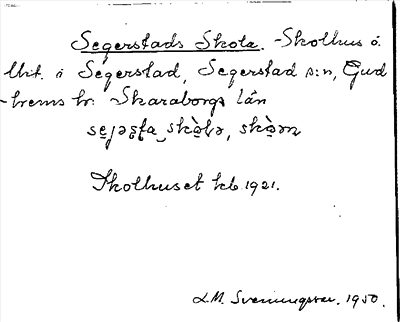 Segerstads Skola. - Skolhus å
lht. i Segerstad, Segerstad s:n, Gud
-hems hr. Skaraborgs län
Skolhuset kb 1921.
L.M. Svenungsson. 1950.